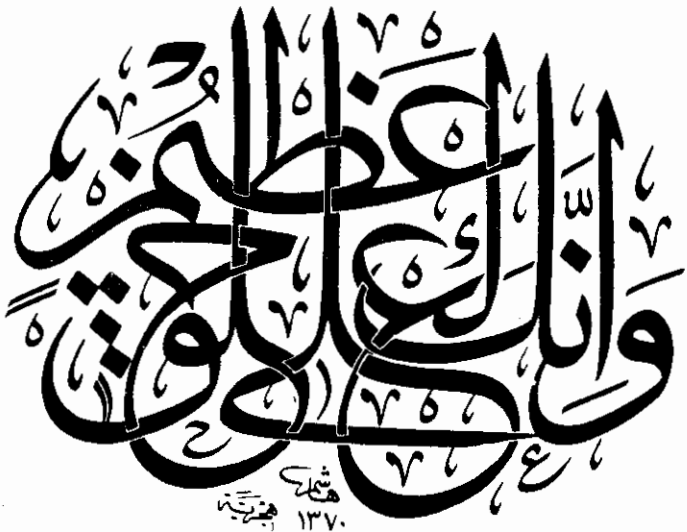 وَإِنَّكَ لَعَلى خُلُقٍ عَظِيمٍ
هاشم
١٣٧٠ هجرية